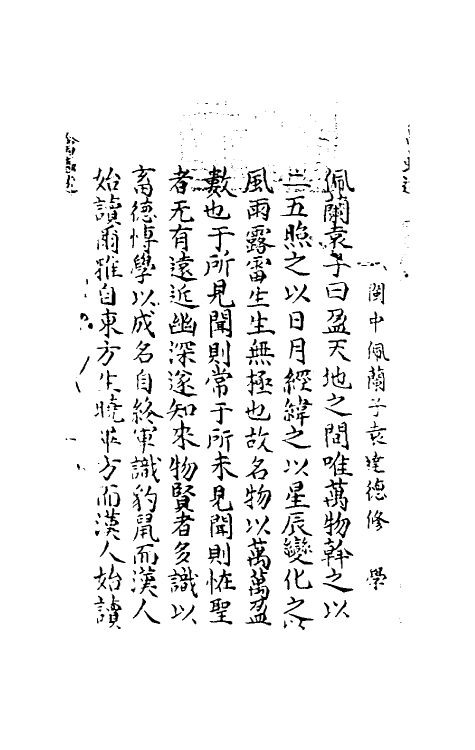 閩中佩蘭子袁達德修 學
佩蘭袁子曰盈天地之間唯萬物幹之以
二五照之以日月經緯之以星辰變化之以
風雨露雷生生無極也故名物以萬萬盈
數也于所見聞則常于所未見聞則恠聖
者无有遠近幽深遂知來物賢者多識以
畜德博學以成名自終軍識豹鼠而漢人
始讀爾雅自東方生曉 方而漢人始讀